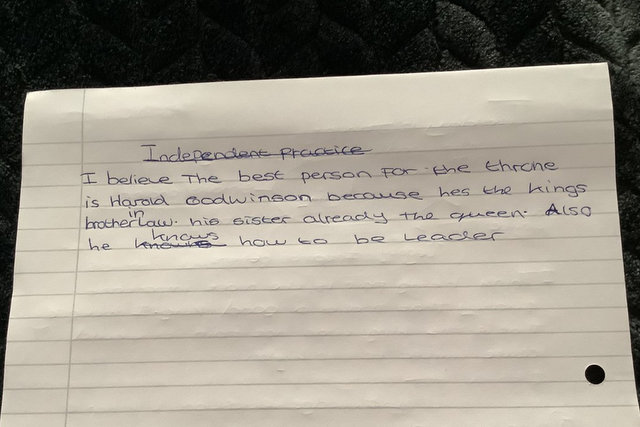 Independent practice
I believe The best person for the throne
is Harold Godwinson because hes the kings
brother in Law. his sister already the queen. Also
he knows how to be Leader